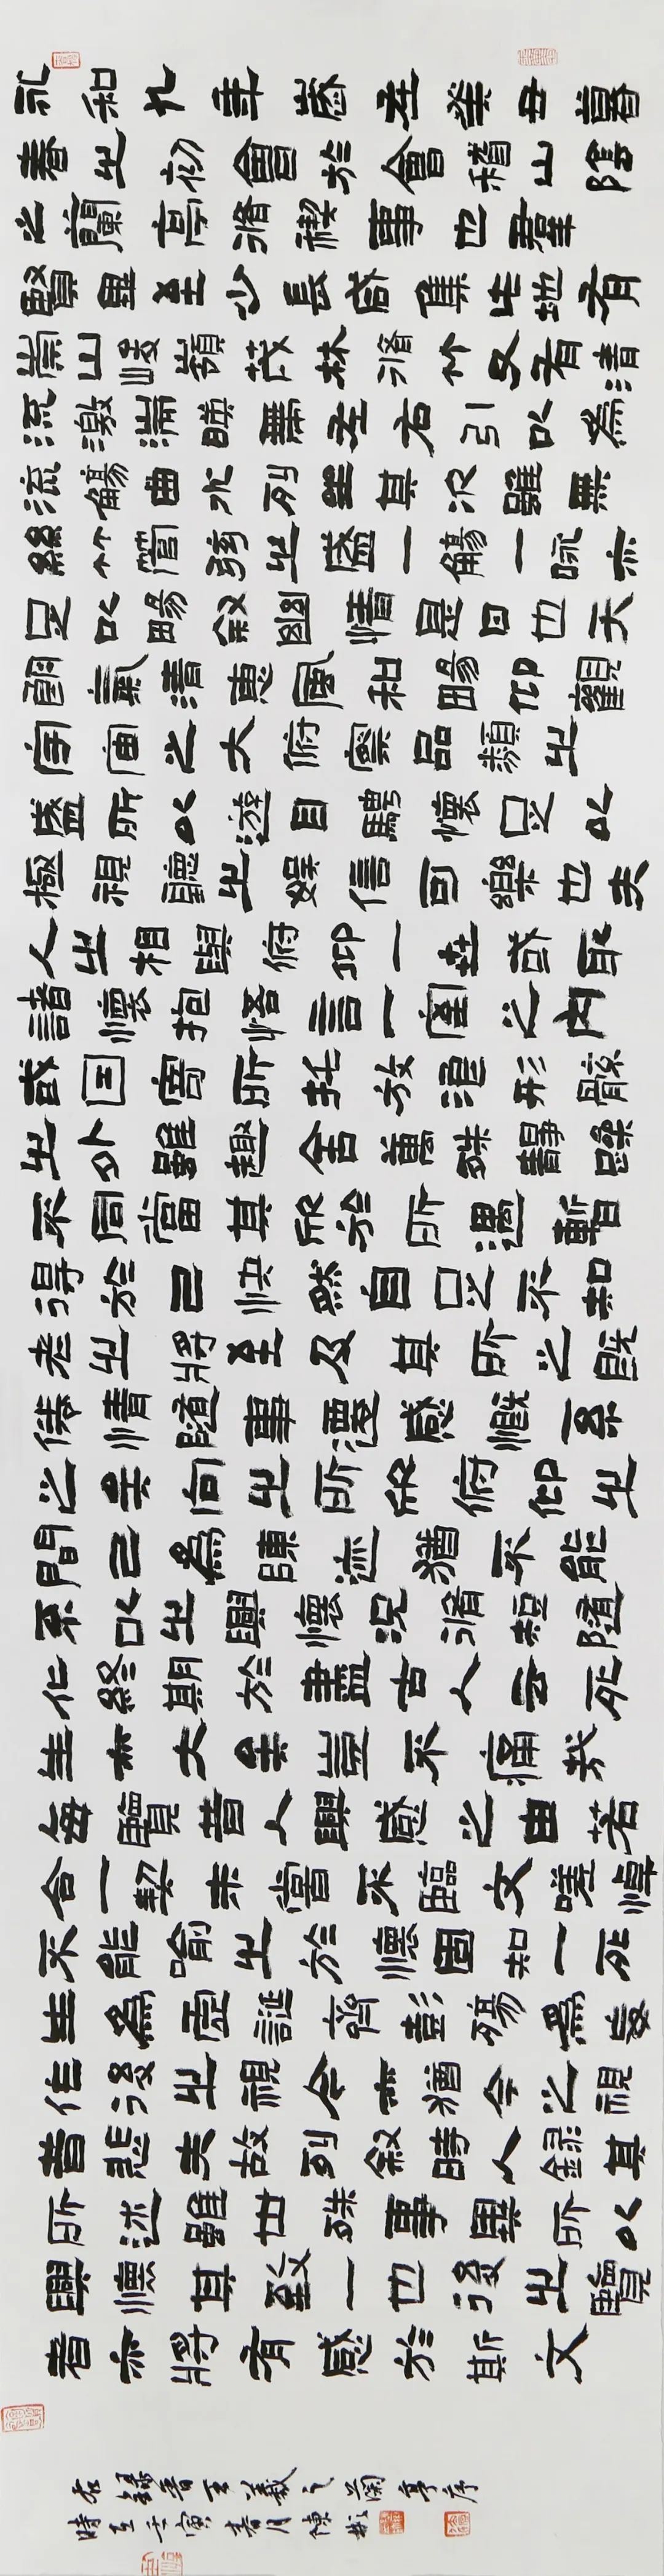 永和九年歲在癸丑暮
春之初會於會稽山陰
之蘭亭脩禊事也羣
賢畢至少長咸集此地有
崇山峻嶺茂林脩竹又有清
流激湍暎帶左右引以為
流觴曲水列坐其次雖無
絲竹管弦之盛一觴一詠亦
足以暢敘幽情是日也天
朗氣清惠風和暢仰觀
宇宙之大俯察品類之
盛所以遊目騁懷足以
極視聽之娛信可樂也夫
人之相與俯仰一世或取
諸懷抱悟言一室之內
或因寄所托放浪形骸
之外雖趣舍萬殊靜躁
不同當其欣於所遇暫
得於己快然自足不知
老之將至及其所之既
倦情隨事遷感慨系
之矣向之所欣俯仰之
間已為陳迹猶不能
不以之興懷況脩短隨
化終期於盡古人云死
生亦大矣豈不痛哉
每覽昔人興感之由若
合一契未嘗不臨文嗟悼
不能喻之於懷固知一死
生為虛誕齊彭殤為妄
作後之視今亦猶今之視
昔悲夫故列敘時人錄其
所述雖世殊事異所以
興懷其致一也後之覽
者亦將有感於斯文
右錄晉王羲之蘭亭序
時在壬寅春月陳彬